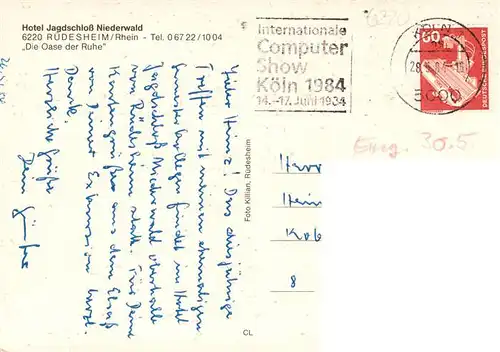 Hotel Jagdschloß Niederwald
6220 RÜDESHEIM/Rhein - Tel. 0 67 22 / 10 04
„Die Oase der Ruhe"
Internationale
Computer
Show
Köln 1984
14.-17. Juni 1984
60
DEUTSCHE BUNDESPOST
KÖLN
5000
Eing. 30.5
Lieber Heinz! Das diesjährige
Treffen mit meinen ehemaligen
Semesterkollegen findet im Hotel
Jagdschloß Niederwald oberhalb
von Rüdesheim statt. Für Deine
Kartengrüße aus dem Elsaß
von Deiner Exkursion herzl.
Dank.
Herzliche Grüße
Dein Günther
Foto Kilian, Rüdesheim
CL
Herr
Hein
Kob
8